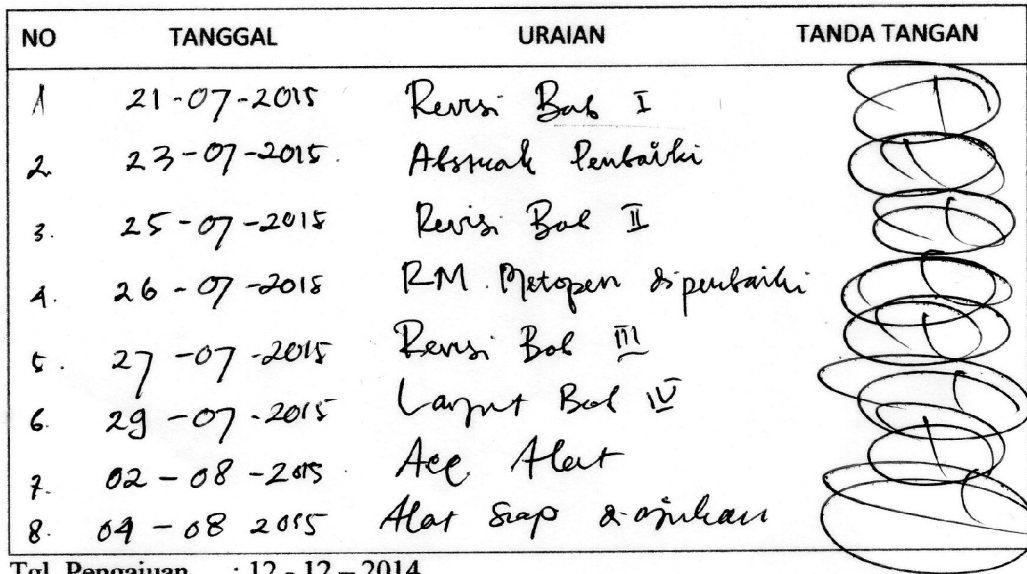 NO TANGGAL URAIAN TANDA TANGAN
1 21-07-2015 Revisi Bab I
2. 23-07-2015. Abstrak Perbaiki
3. 25-07-2015 Revisi Bab II
4. 26-07-2015 RM. Metopen diperbaiki
5. 27-07-2015 Revisi Bab III
6. 29-07-2015 Lanjut Bab IV
7. 02-08-2015 Acc. Alat
8. 04-08 2015 Alat Siap diajukan
Tgl. Pengajuan : 12 - 12 – 2014